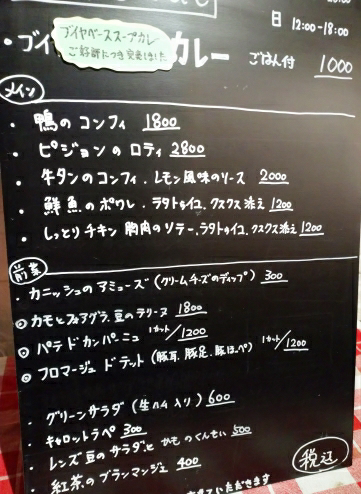 日 12:00-18:00
ブイヤベーススープカレー
ご好評につき完売しました
・ブイ カレー ごはん付 1000
メイン
・鴨のコンフィ 1800
・ピジョンのロティ 2800
・牛タンのコンフィ.レモン風味のソース 2000
・鮮魚のポワレ.ラタトゥイユ.クスクス添え 1200
・しっとりチキン胸肉のソテー.ラタトゥイユ.クスクス添え 1200
前菜
・カニッシュのアミューズ(クリームチーズのディップ) 300
◎カモとフォアグラ.豆のテリーヌ 1800
◎パテドカンパーニュ 1カット/1200
◎フロマージュドテット(豚耳.豚足.豚ほっぺ) 1カット/1200
・グリーンサラダ(生ハム入り) 600
・キャロットラペ 300
・レンズ豆のサラダと かものくんせい 500
・紅茶のブランマンジェ 400
税込
いただきます